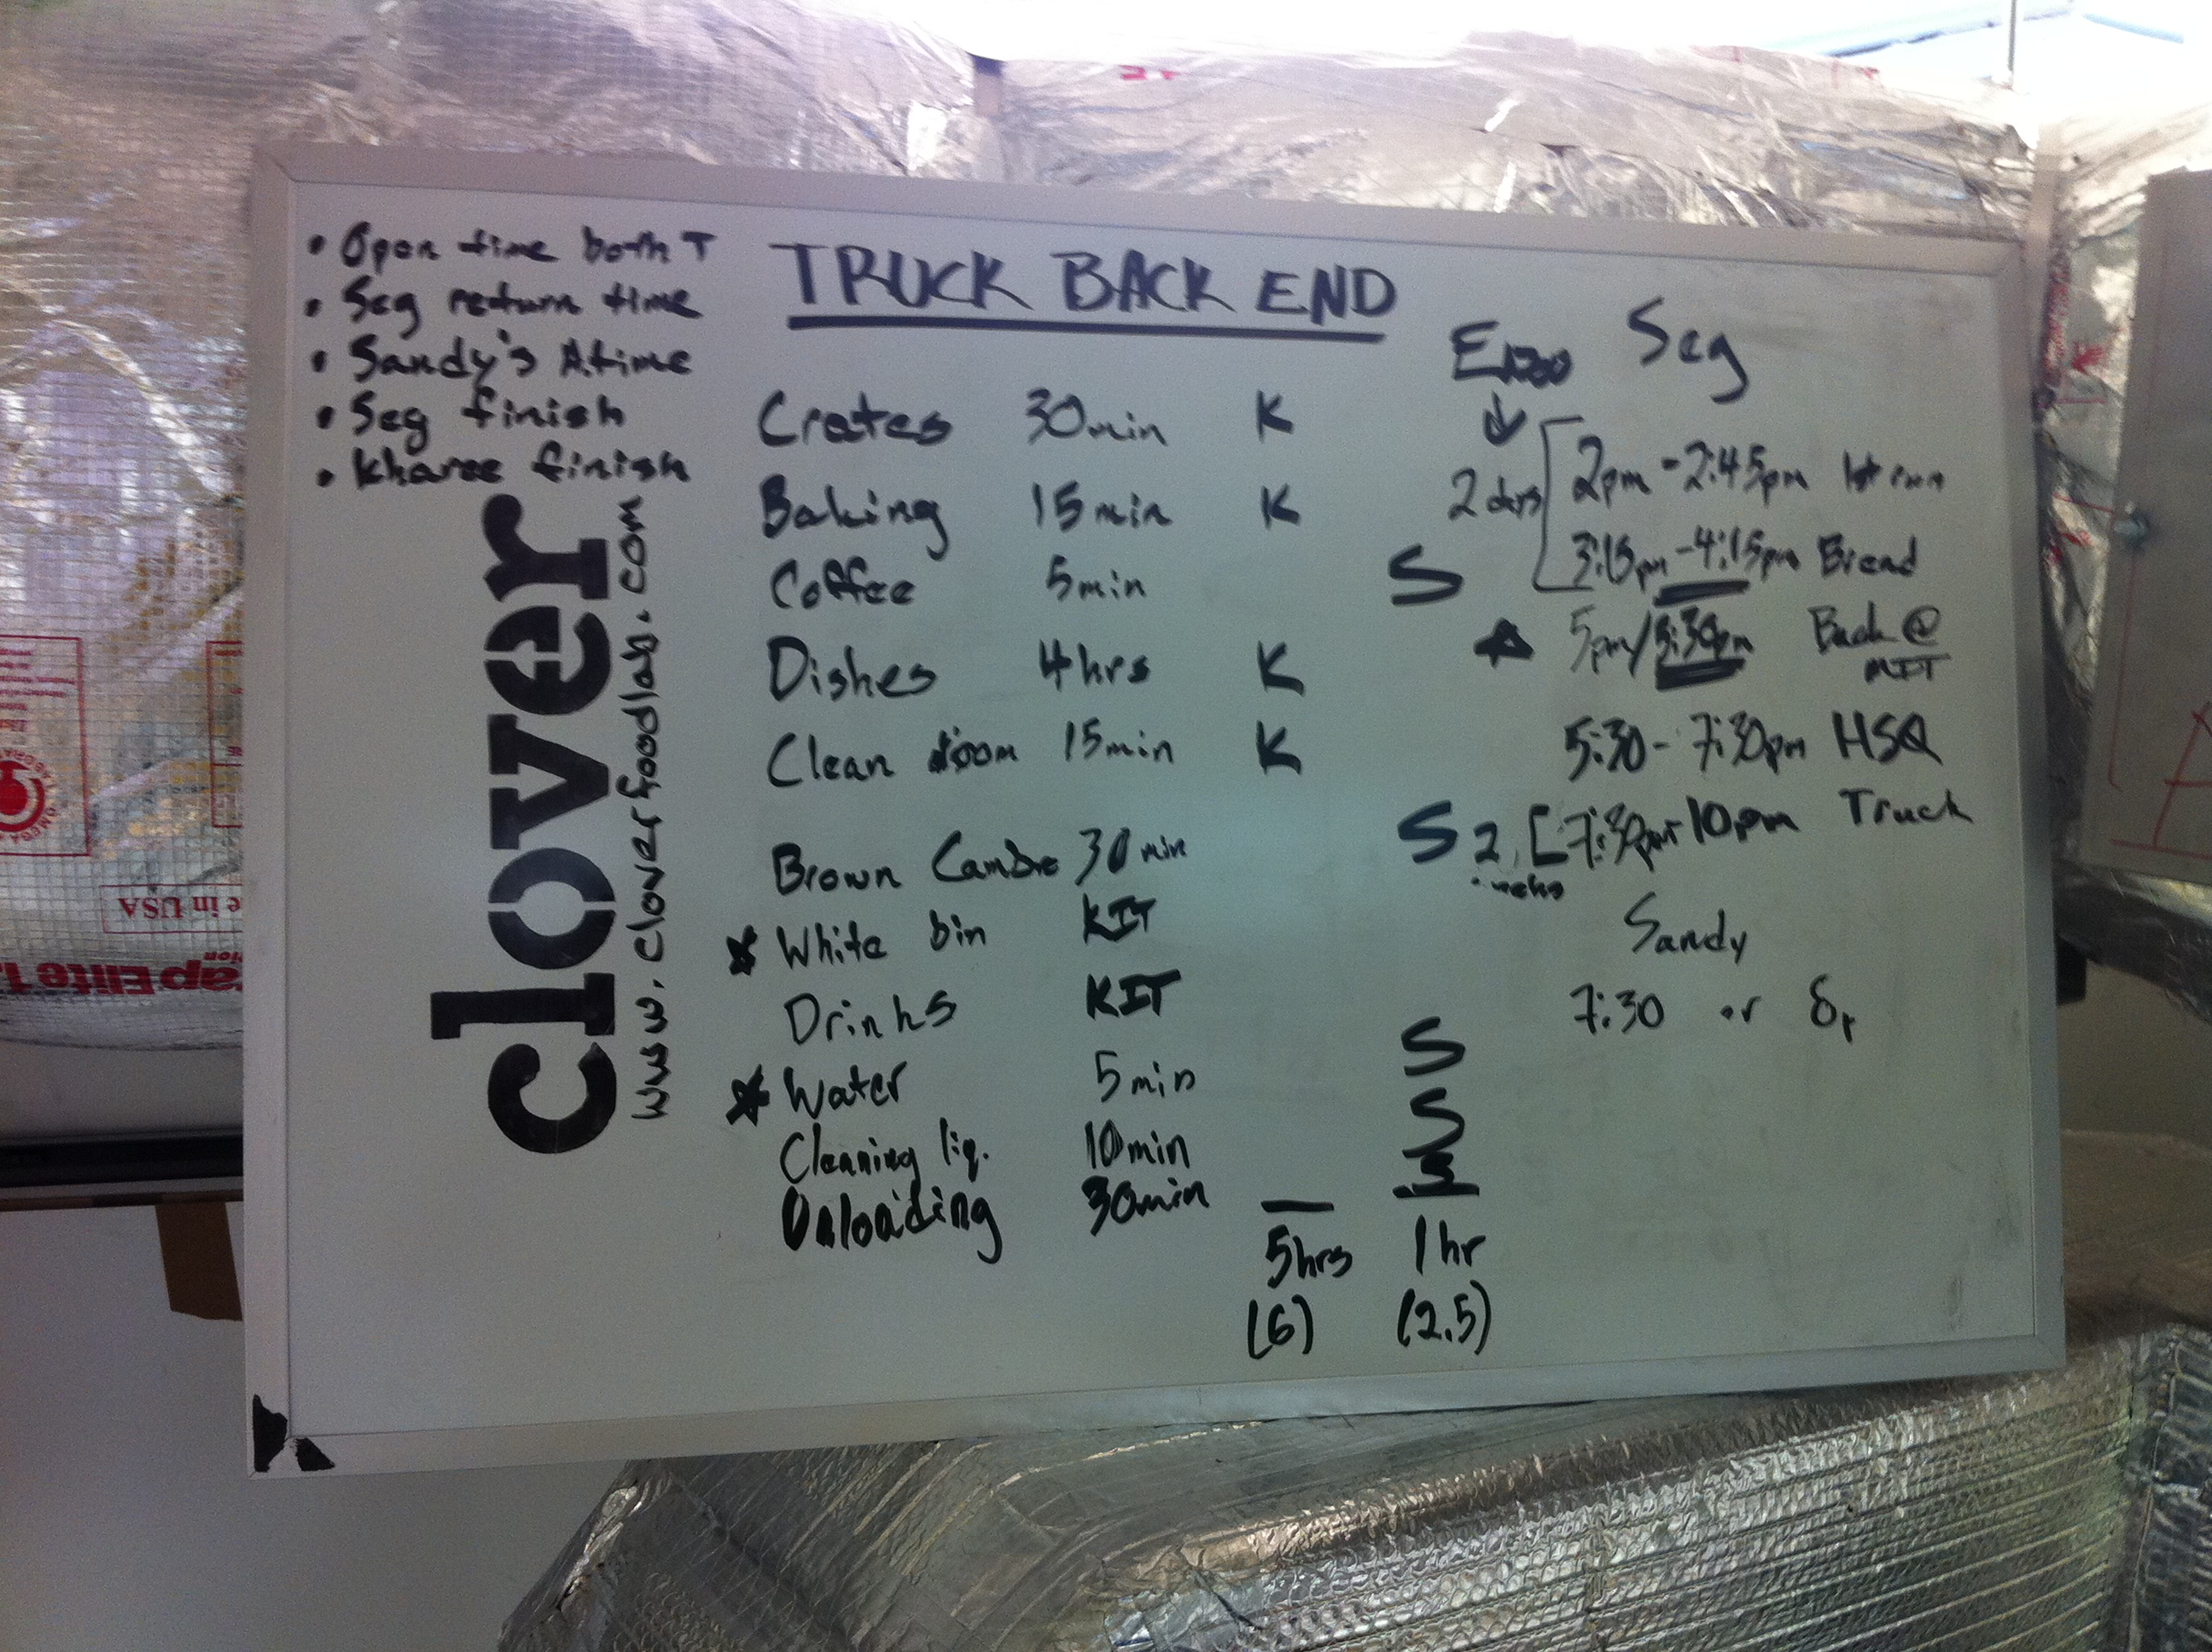 • Open time both T
• Seg return time
• Sandy's A.time
• Seg finish
• Kharee finish
clover
www.cloverfoodlab.com
TRUCK BACK END
Crates 30min K
Baking 15min K
Coffee 5min S
Dishes 4hrs K
Clean room 15min K
Brown Cambro 30min S
White bin KIT
Drinks KIT
Water 5min S
Cleaning liq. 10min S
Unloading 30min S
5hrs 1hr
(6) (2.5)
Enzo Seg
2pm-2:45pm 1st run
3:15pm-4:15pm Bread
5pm/5:30pm Back @
MIT
5:30-7:30pm HSQ
2 [7:30pm-10pm Truck
Sandy
7:30 or
e in USA